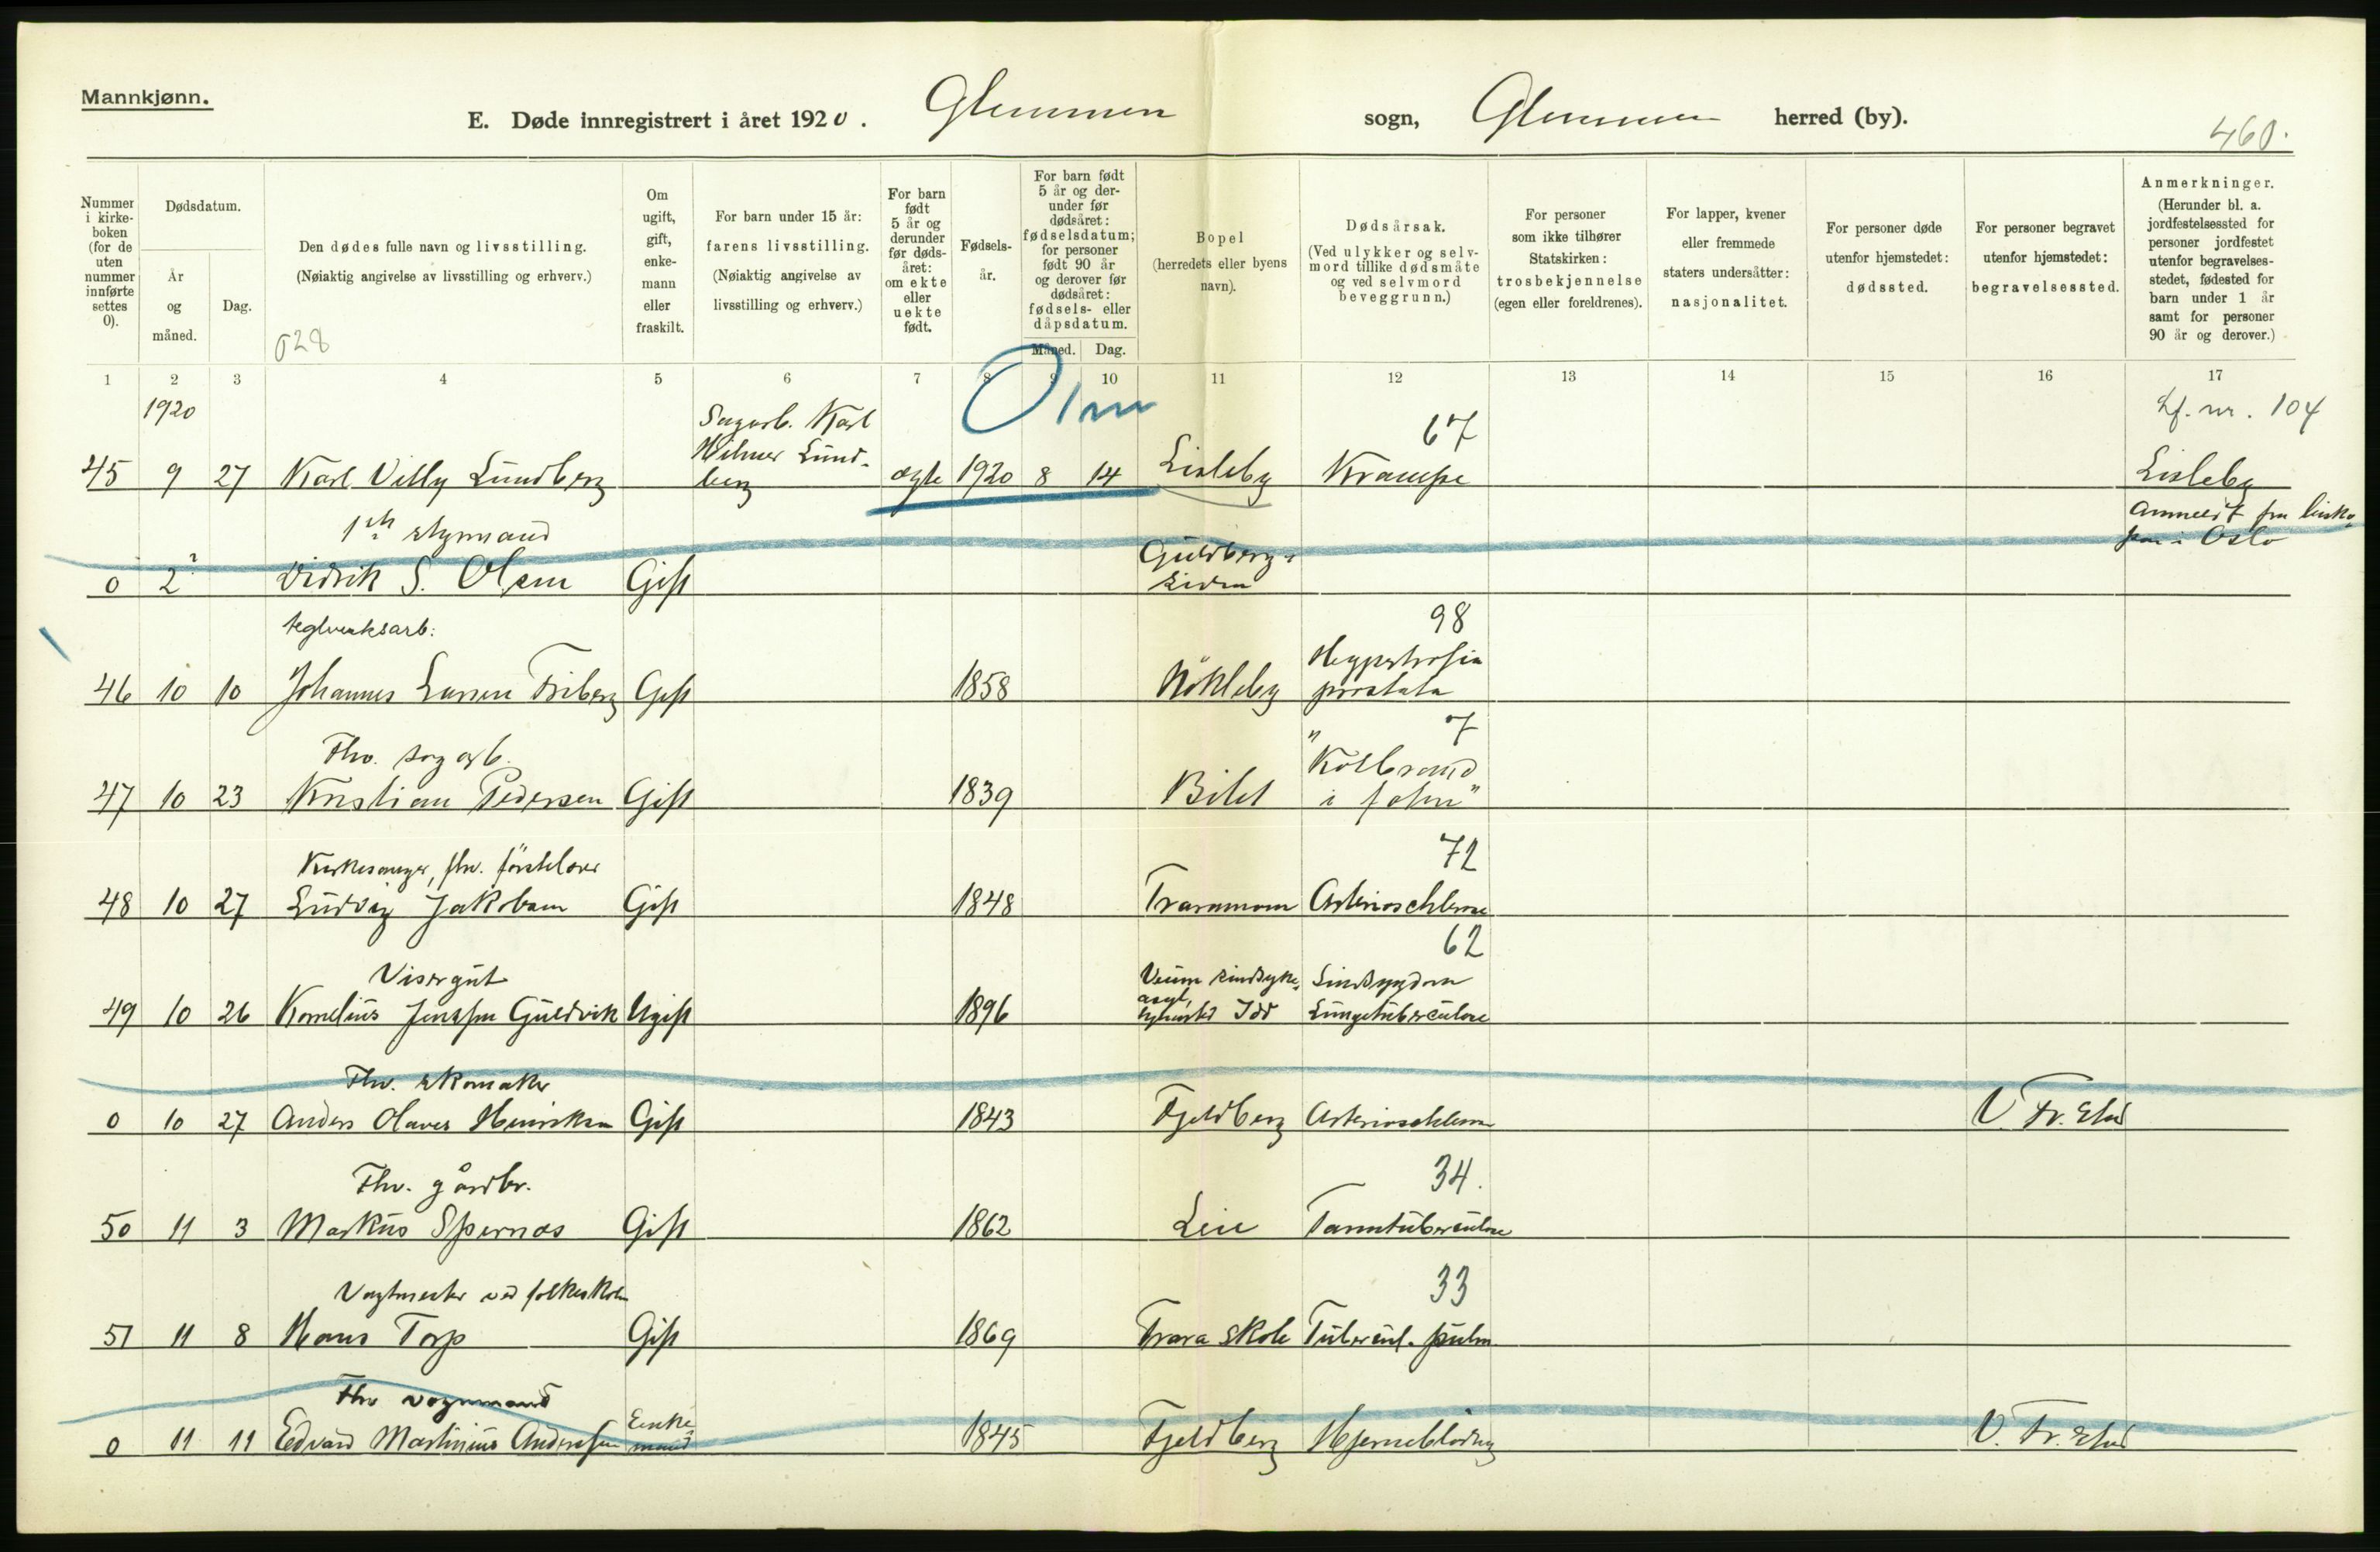 Mannkjønn.
E. Døde innregistrert i året 1920. Glemmen sogn, Glemmen herred (by).
460.
Nummer i kirkeboken (for de uten nummer innførte settes 0).
Dødsdatum.
År og måned.
Dag.
Den dødes fulle navn og livsstilling.
(Nøiaktig angivelse av livsstilling og erhverv.)
028
Om ugift, gift, enkemann eller fraskilt.
For barn under 15 år: farens livsstilling.
(Nøiaktig angivelse av livsstilling og erhverv.)
For barn født 5 år og derunder før dødsåret: om ekte eller uekte født.
Fødselsår.
For barn født 5 år og derunder før dødsåret: fødselsdatum; for personer født 90 år og derover før dødsåret: fødsels- eller dåpsdatum.
Måned. Dag.
Bopel (herredets eller byens navn).
Dødsårsak.
(Ved ulykker og selvmord tillike dødsmåte og ved selvmord beveggrunn.)
For personer som ikke tilhører Statskirken: trosbekjennelse (egen eller foreldrenes).
For lapper, kvener eller fremmede staters undersåtter: nasjonalitet.
For personer døde utenfor hjemstedet: dødssted.
For personer begravet utenfor hjemstedet: begravelsessted.
Anmerkninger.
(Herunder bl. a. jordfestelsessted for personer jordfestet utenfor begravelsesstedet, fødested for barn under 1 år samt for personer 90 år og derover.)
1 2 3 4 5 6 7 8 9 10 11 12 13 14 15 16 17
1920
01m
Lf. nr. 104
Sagarb. Karl Hilmer Lundberg
67
45 9 27 Karl Villy Lundberg ægte 1920 8 14 Lisleby Krampe Lisleby
1ste styrmand
Anmeldt fra bisko
i Oslo
0 2? Didrik S. Olsen Gift Guldbergsiden
teglverksarb:
98
46 10 10 Johannes Larsen Friberg Gift 1858 Nökleby Hyppertrofia prostata
Fhv. sag arb.
7
47 10 23 Kristian Pedersen Gift 1839 Bilet "Kolbrand i foten"
Kirkesanger, fhv. förstelærer
72
48 10 27 Ludvig Jakobsen Gift 1848 Traramoen Arterioschlerose
62
Visergut
49 10 26 Kornelius Jensen Guldvik Ugift 1896 Veum sindsyke asyl, Idd Sindsygdom Lungetuberculose
Fhv. skomaker
0 10 27 Anders Olaves Henriksen Gift 1843 Fjeldberg Arterioschlerose V. Fr. Stad
Fhv. gårdbr.
34.
50 11 3 Markus Spernæs Gift 1862 Leie Tarmtuberculose
Vagtmester ved folkeskolen
33
51 11 8 Hans Torp Gift 1869 Trara skole Tubercul. pulm.
Fhv vognmand
0 11 11 Edvard Martinius Andersen Enkemand 1845 Fjeldberg Hjerneblødng V. Fr. Stad